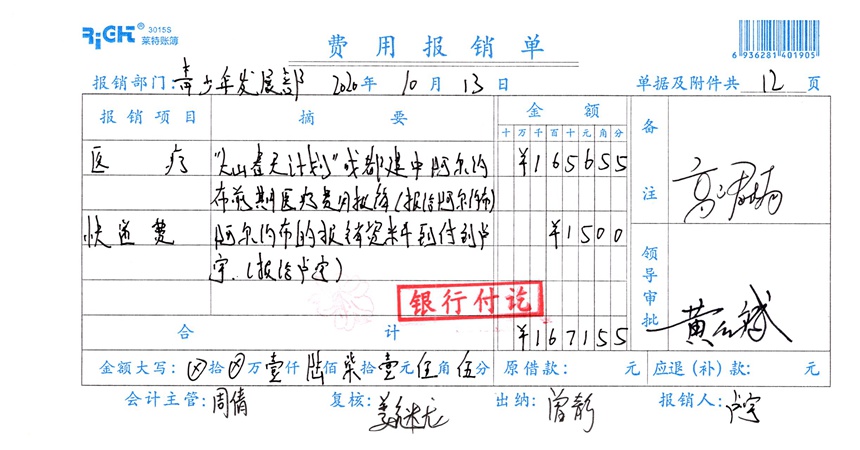 RiGHt® 3015S
莱特账簿
费用报销单
6 936281 401905
报销部门: 青少年发展部 2020年 10月 13日 单据及附件共 12 页
报销项目 摘要 金额 备注
十万千百十元角分
医疗 "大山春天计划"成都建中阿尔约 ¥165655
布前期医疗费用报销(报给阿尔约布)
快递费 阿尔约布的报销资料到付到卢 ¥1500
宇.(报给卢宇)
领导审批
银行付讫
合计 ¥167155
金额大写: ⊗拾⊗万壹仟陆佰柒拾壹元伍角伍分 原借款: 元 应退(补)款: 元
会计主管: 周倩 复核: 出纳: 报销人: 卢宇